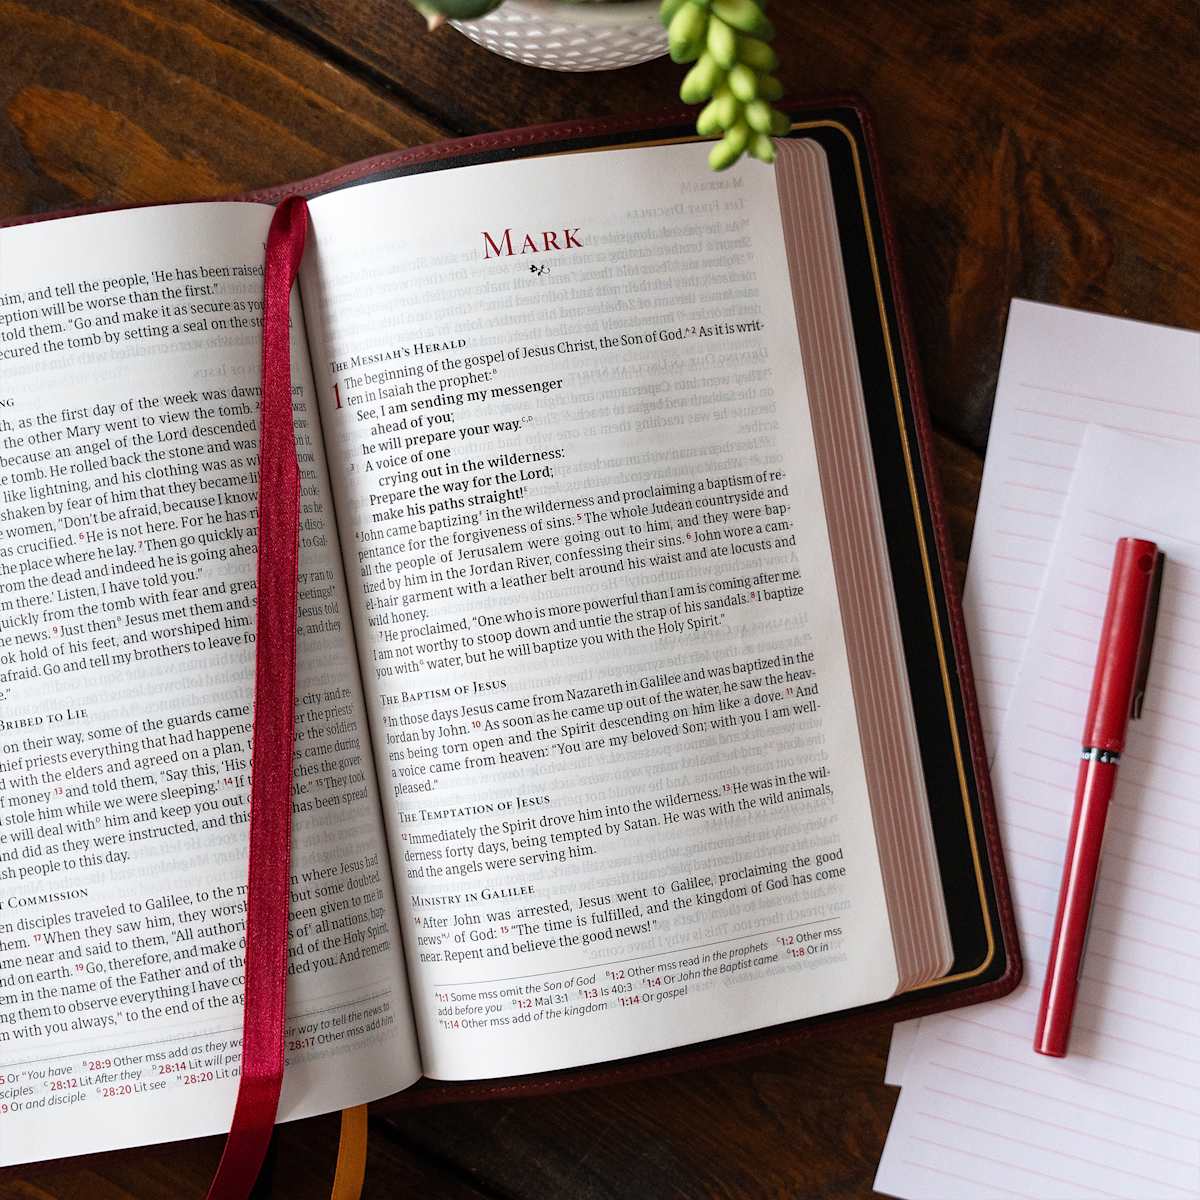 him, and tell the people, 'He has been raised
ception will be worse than the first."
told them. "Go and make it as secure as you
ecured the tomb by setting a seal on the stone
NG
th, as the first day of the week was dawning
the other Mary went to view the tomb. ² was
because an angel of the Lord descended
tomb. He rolled back the stone and was on it.
like lightning, and his clothing was as w now.
shaken by fear of him that they became li
women, "Don't be afraid, because I know look-
as crucified. ⁶ He is not here. For he has ri as he
the place where he lay. ⁷ Then go quickly an disci-
rom the dead and indeed he is going ahea to Gal-
m there.' Listen, I have told you."
quickly from the tomb with fear and grea ey ran to
he news. ⁹ Just then ᴮ Jesus met them and s reetings!"
ok hold of his feet, and worshiped him. Jesus told
afraid. Go and tell my brothers to leave fo and they
e."
BRIBED TO LIE
on their way, some of the guards came city and re-
hief priests everything that had happene the priests'
d with the elders and agreed on a plan, t ve the soldiers
f money ¹³ and told them, "Say this, 'His es came during
stole him while we were sleeping.' ¹⁴ If t ches the gover-
e will deal with ᴰ him and keep you out o ble." ¹⁵ They took
nd did as they were instructed, and this has been spread
sh people to this day.
T COMMISSION
en disciples traveled to Galilee, to the m n where Jesus had
hem. ¹⁷ When they saw him, they worsh but some doubted.
me near and said to them, "All authori been given to me in
nd on earth. ¹⁹ Go, therefore, and make d s of all nations, bap-
em in the name of the Father and of the nd of the Holy Spirit,
ng them to observe everything I have co ded you. And remem-
m with you always," to the end of the ag
5 Or "You have ᴮ 28:9 Other mss add as they we eir way to tell the news to
sciples ᶜ 28:12 Lit After they ᴰ 28:14 Lit will per 28:17 Other mss add him
9 Or and disciple ᴳ 28:20 Lit see ᴴ 28:20 Lit al
MARK
THE MESSIAH'S HERALD
1 The beginning of the gospel of Jesus Christ, the Son of God.ᴬ ² As it is writ-
ten in Isaiah the prophet:ᴮ
See, I am sending my messenger
ahead of you;
he will prepare your way.ᶜ,ᴰ
³ A voice of one
crying out in the wilderness:
Prepare the way for the Lord;
make his paths straight!ᴱ
⁴ John came baptizingᶠ in the wilderness and proclaiming a baptism of re-
pentance for the forgiveness of sins. ⁵ The whole Judean countryside and
all the people of Jerusalem were going out to him, and they were bap-
tized by him in the Jordan River, confessing their sins. ⁶ John wore a cam-
el-hair garment with a leather belt around his waist and ate locusts and
wild honey.
⁷ He proclaimed, "One who is more powerful than I am is coming after me.
I am not worthy to stoop down and untie the strap of his sandals. ⁸ I baptize
you withᴳ water, but he will baptize you with the Holy Spirit."
THE BAPTISM OF JESUS
⁹ In those days Jesus came from Nazareth in Galilee and was baptized in the
Jordan by John. ¹⁰ As soon as he came up out of the water, he saw the heav-
ens being torn open and the Spirit descending on him like a dove. ¹¹ And
a voice came from heaven: "You are my beloved Son; with you I am well-
pleased."
THE TEMPTATION OF JESUS
¹² Immediately the Spirit drove him into the wilderness. ¹³ He was in the wil-
derness forty days, being tempted by Satan. He was with the wild animals,
and the angels were serving him.
MINISTRY IN GALILEE
¹⁴ After John was arrested, Jesus went to Galilee, proclaiming the good
newsᴴ,ᴵ of God: ¹⁵ "The time is fulfilled, and the kingdom of God has come
near. Repent and believe the good news!"
ᴬ 1:1 Some mss omit the Son of God ᴮ 1:2 Other mss read in the prophets ᶜ 1:2 Other mss
add before you ᴰ 1:2 Mal 3:1 ᴱ 1:3 Is 40:3 ᶠ 1:4 Or John the Baptist came ᴳ 1:8 Or in
ᴴ 1:14 Other mss add of the kingdom ᴵ 1:14 Or gospel